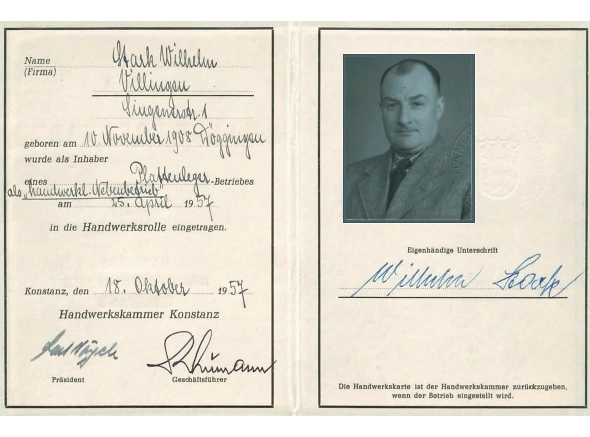 Name Stark Wilhelm
(Firma) Villingen
Singenerstr. 1
geboren am 10. November 1908 Döggingen
wurde als Inhaber
eines Plattenleger-Betriebes
als "handwerkl. Nebenbetrieb"
am 25. April 1957
in die Handwerksrolle eingetragen.
Konstanz, den 18. Oktober 1957
Handwerkskammer Konstanz
Präsident Geschäftsführer
Eigenhändige Unterschrift
Wilhelm Stark
Die Handwerkskarte ist der Handwerkskammer zurückzugeben,
wenn der Betrieb eingestellt wird.